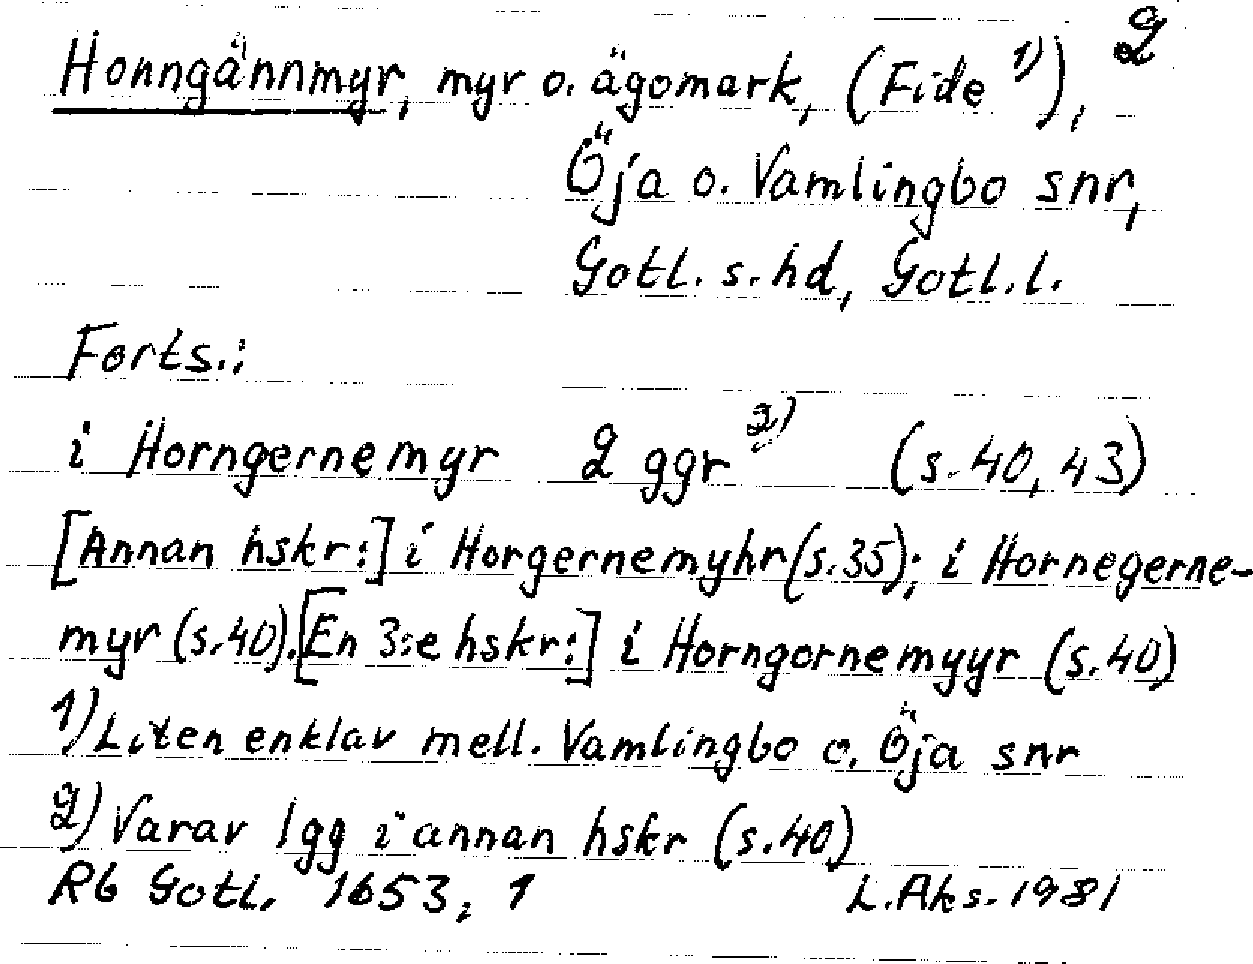 Honngännmyr, myr o. ägomark, (Fide 1)), 2
Öja o. Vamlingbo snr,
Gotl. s. hd, Gotl. l.
Forts.:
i Horngernemyr 2 ggr 2) (s. 40, 43)
[Annan hskr:] i Horgernemyhr (s. 35); i Hornegerne-
myr (s. 40). [En 3:e hskr:] i Horngornemyyr (s. 40)
1) Liten enklav mell. Vamlingbo o. Öja snr
2) Varav 1 gg i annan hskr (s. 40)
Rb Gotl. 1653, 1 L. Aks. 1981